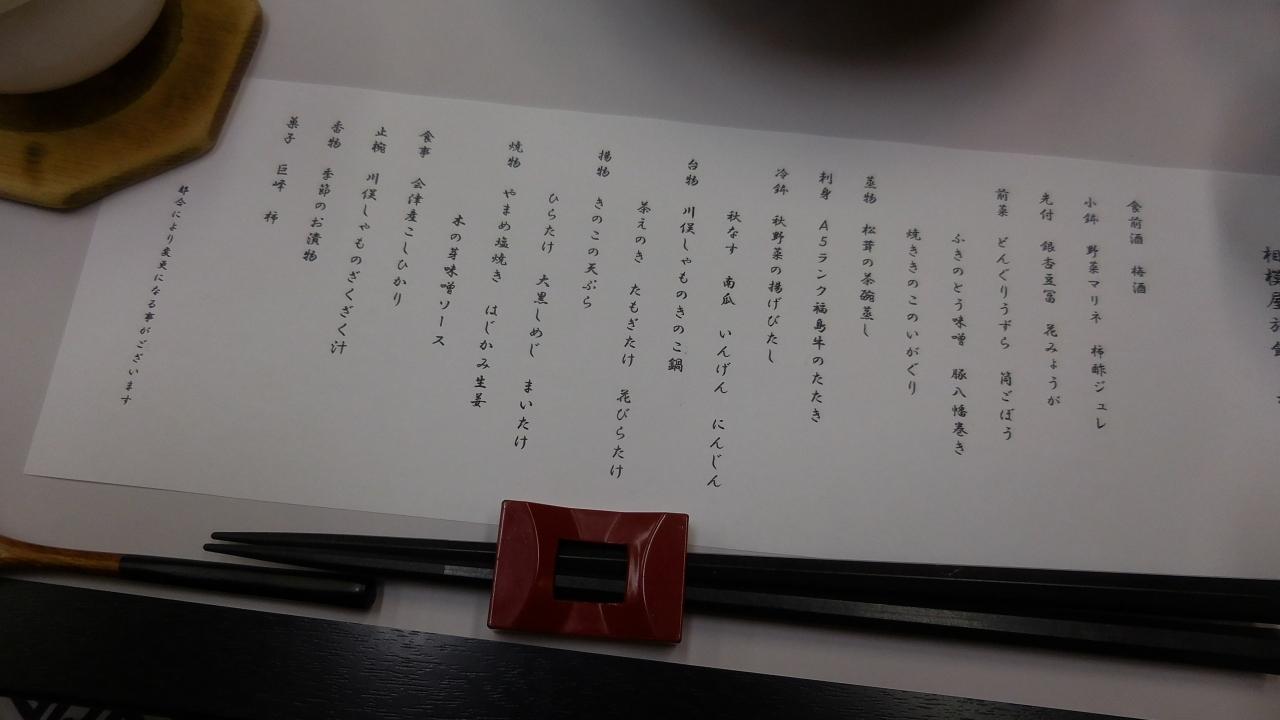 相模屋旅館
食前酒　梅酒
小鉢　野菜マリネ　柿酢ジュレ
先付　銀杏豆冨　花みょうが
前菜　どんぐりうずら　筒ごぼう
ふきのとう味噌　豚八幡巻き
焼ききのこのいがぐり
蒸物　松茸の茶碗蒸し
刺身　A5ランク福島牛のたたき
冷鉢　秋野菜の揚げびたし
秋なす　南瓜　いんげん　にんじん
台物　川俣しゃものきのこ鍋
茶えのき　たもぎたけ　花びらたけ
揚物　きのこの天ぷら
ひらたけ　大黒しめじ　まいたけ
焼物　やまめ塩焼き　はじかみ生姜
木の芽味噌ソース
食事　会津産こしひかり
止椀　川俣しゃものざくざく汁
香物　季節のお漬物
菓子　巨峰　柿
都合により変更になる事がございます